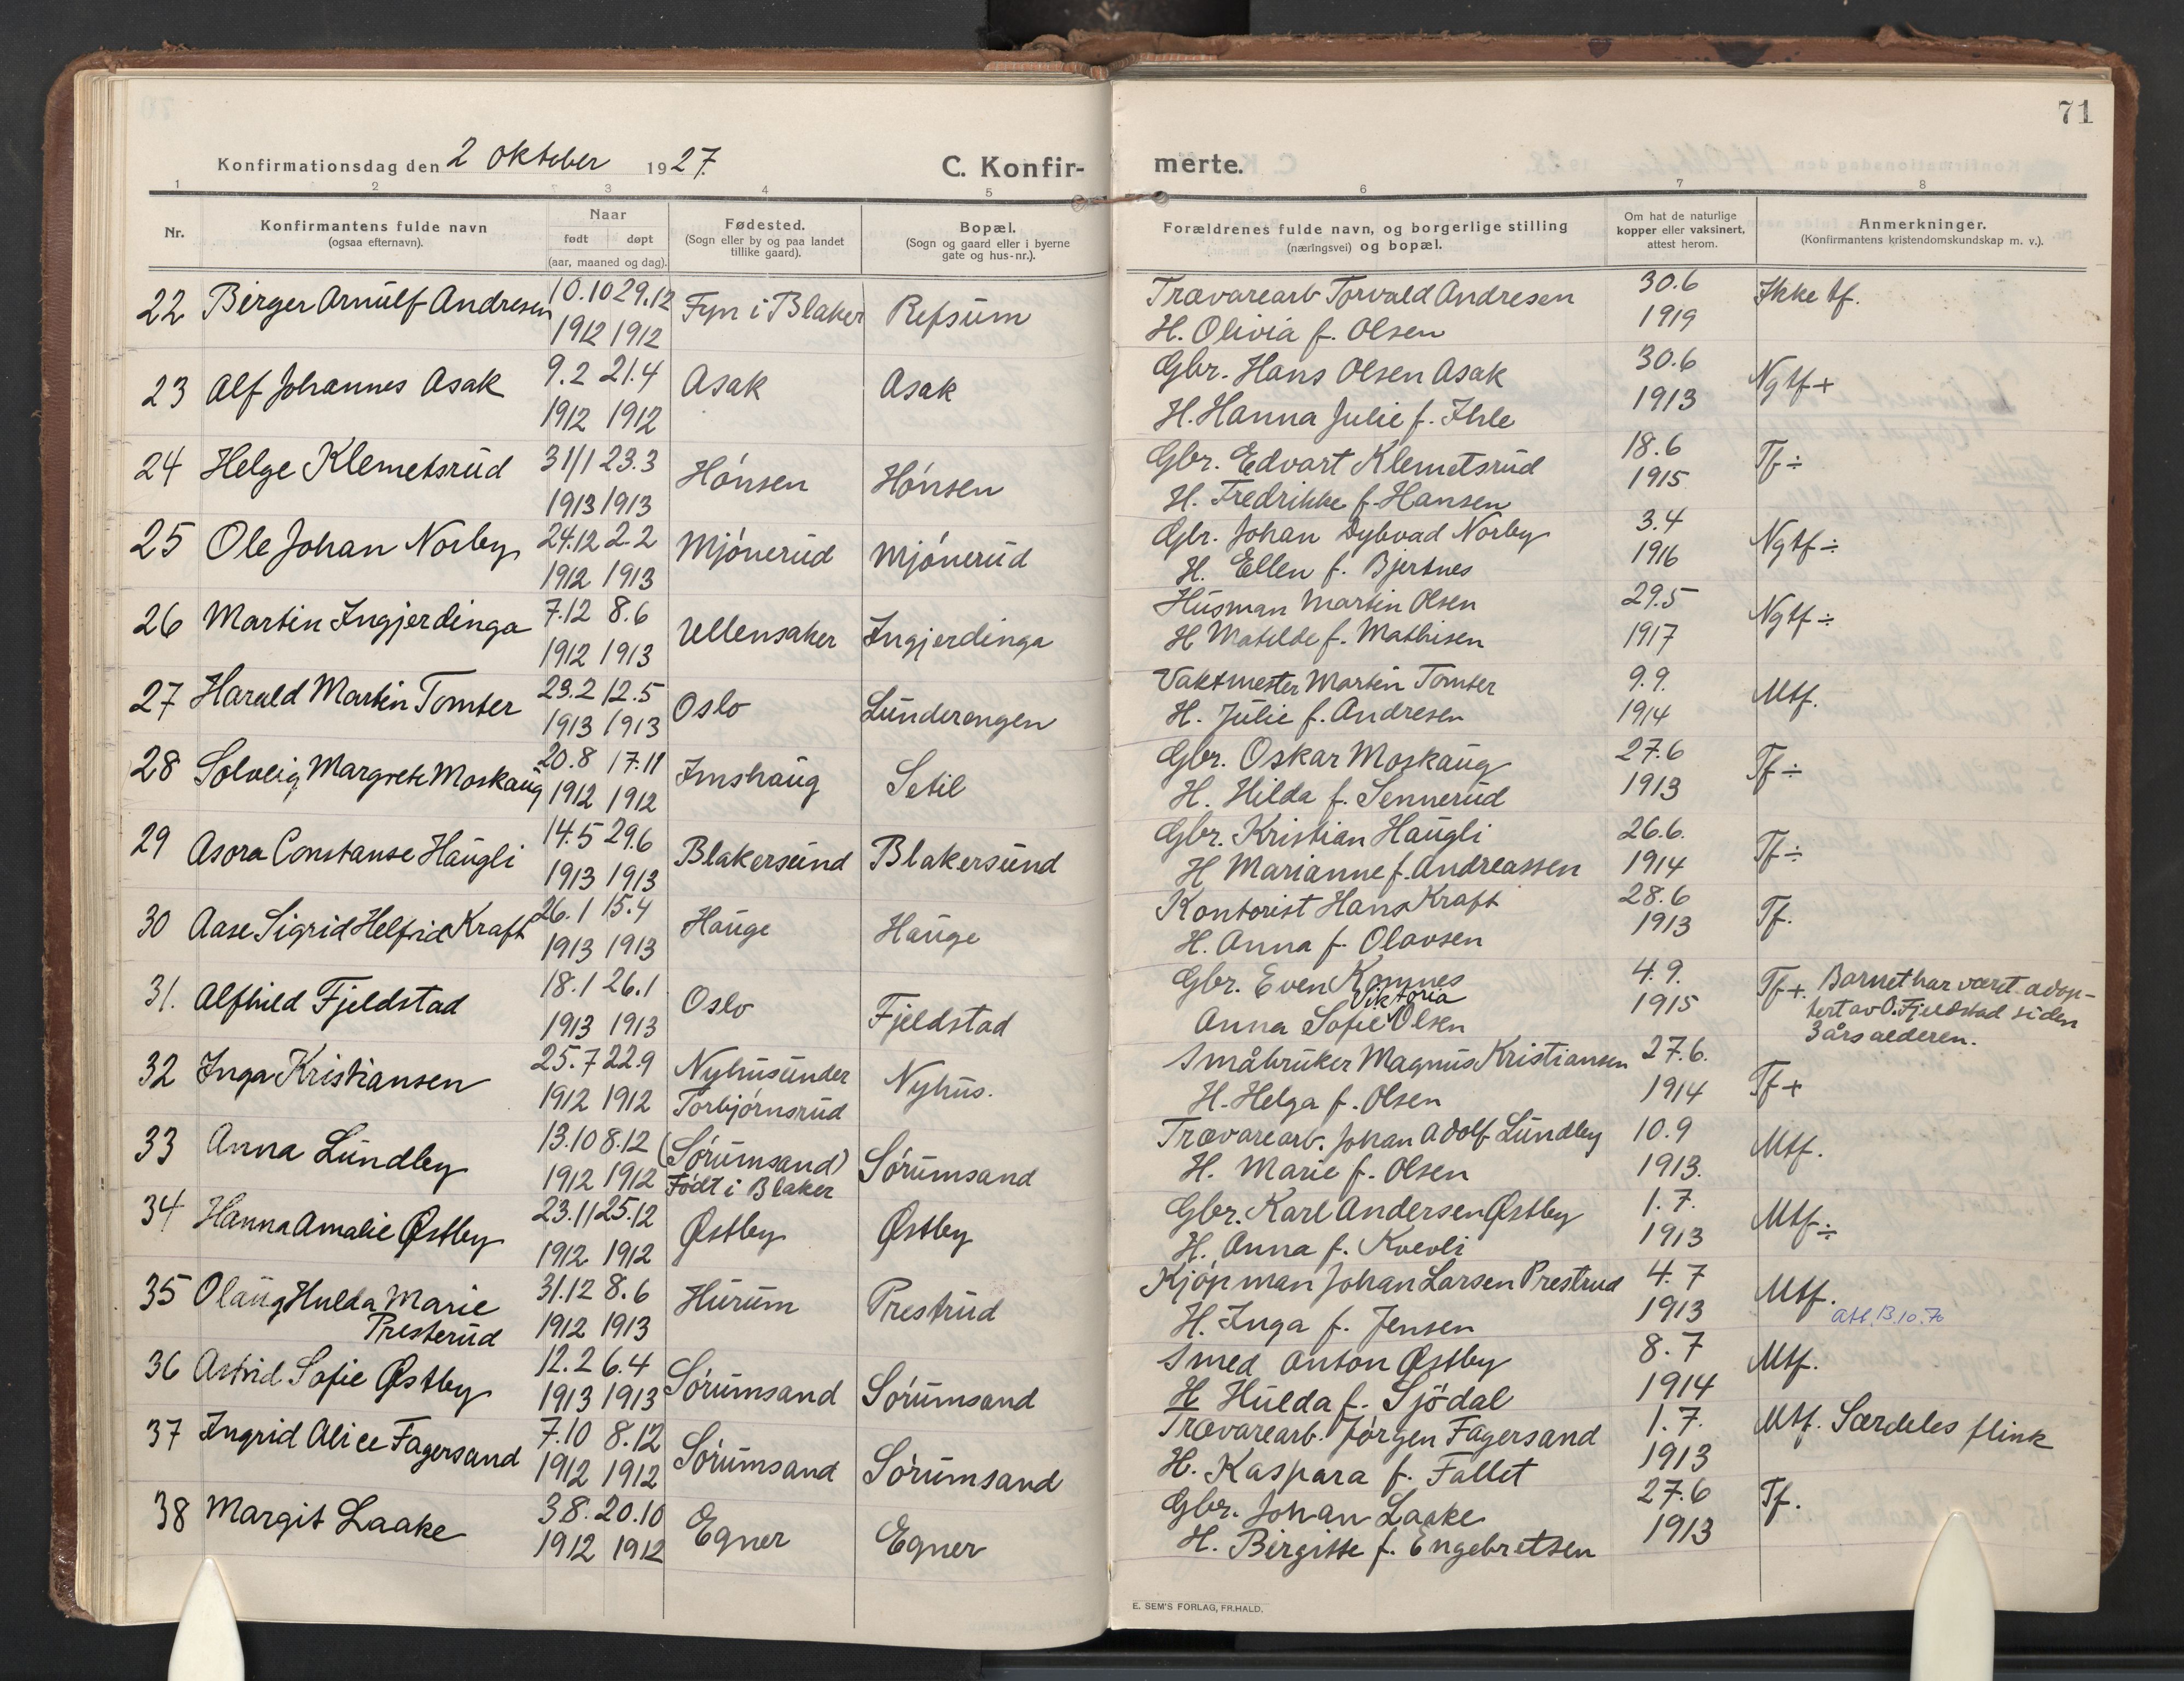 71
Konfirmationsdag den 2 oktober 1927. C. Konfir- merte.
1 2 3 4 5 6 7 8
Nr. Konfirmantens fulde navn (ogsaa efternavn). Naar født døpt (aar, maaned og dag). Fødested. (Sogn eller by og paa landet tillike gaard). Bopæl. (Sogn og gaard eller i byerne gate og hus-nr.). Forældrenes fulde navn, og borgerlige stilling (næringsvei) og bopæl. Om hat de naturlige kopper eller vaksinert, attest herom. Anmerkninger. (Konfirmantens kristendomskundskap m. v.).
22 Birger Arnulf Andresen 10.10 29.12 Fyn i Blaker Refsum Trævarearb Torvald Andresen 30.6 Ikke tf.
1912 1912 H. Olivia f. Olsen 1919
23 Alf Johannes Asak 9.2 21.4 Asak Asak Gbr. Hans Olsen Asak 30.6 Ngtf +
1912 1912 H. Hanna Julie f. Ihle 1913
24 Helge Klemetsrud 31/1 23.3 Hónsen Hónsen Gbr. Edvart Klemetsrud 18.6 Tf ÷
1913 1913 H. Fredrikke f. Hansen 1915
25 Ole Johan Norby 24.12 2.2 Mjónerud Mjónerud Gbr. Johan Dybvad Norby 3.4 Ngtf ÷
1912 1913 H. Ellen f. Bjertnes 1916
26 Martin Ingjerdinga 7.12 8.6 Ullensaker Ingjerdinga Husman Martin Olsen 29.5 Ngtf ÷
1912 1913 H Matilde f. Mathisen 1917
27 Harald Martin Tomter 23.2 12.5 Oslo Lunderengen Vaktmester Martin Tomter 9.9. Mtf.
1913 1913 H. Julie f. Andresen 1914
28 Solveig Margrete Moskaug 20.8 17.11 Imshaug Setil Gbr. Oskar Moskaug 27.6 Tf ÷
1912 1912 H. Hilda f. Sennerud 1913
29 Asora Constanse Haugli 14.5 29.6 Blakersund Blakersund Gbr. Kristian Haugli 26.6. Tf ÷
1913 1913 H Marianne f. Andreassen 1914
30 Aase Sigrid Helfrid Kraft 26.1 15.4 Hauge Hauge Kontorist Hans Kraft 28.6 Tf.
1913 1913 H. Anna f. Olavsen 1913
31. Alfhild Fjeldstad 18.1 26.1 Oslo Fjeldstad Gbr. Even Komnes 4.9. Tf +. Barnet har været adop-
1913 1913 Anna Sofie Viktoria Olsen 1915 tert av O. Fjeldstad siden
3 års alderen.
32 Inga Kristiansen 25.7 22.9 Nyhus under Nyhus. Småbruker Magnus Kristiansen 27.6. Tf +
1912 1912 Torbjørnsrud H. Helga f. Olsen 1914
33 Anna Lundby 13.10 8.12 (Sórumsand) Sórumsand Trævarearb. Johan Adolf Lundby 10.9 Mtf.
1912 1912 Født i Blaker H. Marie f. Olsen 1913.
34 Hanna Amalie Østby 23.11 25.12 Østby Østby Gbr. Karl Andersen Østby 1.7. Mtf ÷
1912 1912 H. Anna f. Kvevli 1913
35 Olaug Hulda Marie 31.12 8.6 Hurum Prestrud Kjópman Johan Larsen Prestrud 4.7 Mtf.
Presterud 1912 1913 H. Inga f. Jensen 1913 Att. 13.10.70
36 Astrid Sofie Østby 12.2 6.4 Sórumsand Sórumsand Smed Anton Østby 8.7 Mtf.
1913 1913 H Hulda f. Sjödal 1914
37 Ingrid Alice Fagersand 7.10 8.12 Sórumsand Sórumsand Trævarearb. Jørgen Fagersand 1.7. Mtf. Særdeles flink
1912 1912 H. Kaspara f. Fallet 1913
38 Margit Laake 3.8. 20.10 Egner Egner Gbr. Johan Laake 27.6 Tf.
1912 1912 H. Birgitte f. Engebretsen 1913
E. SEM'S FORLAG, FR.HALD.